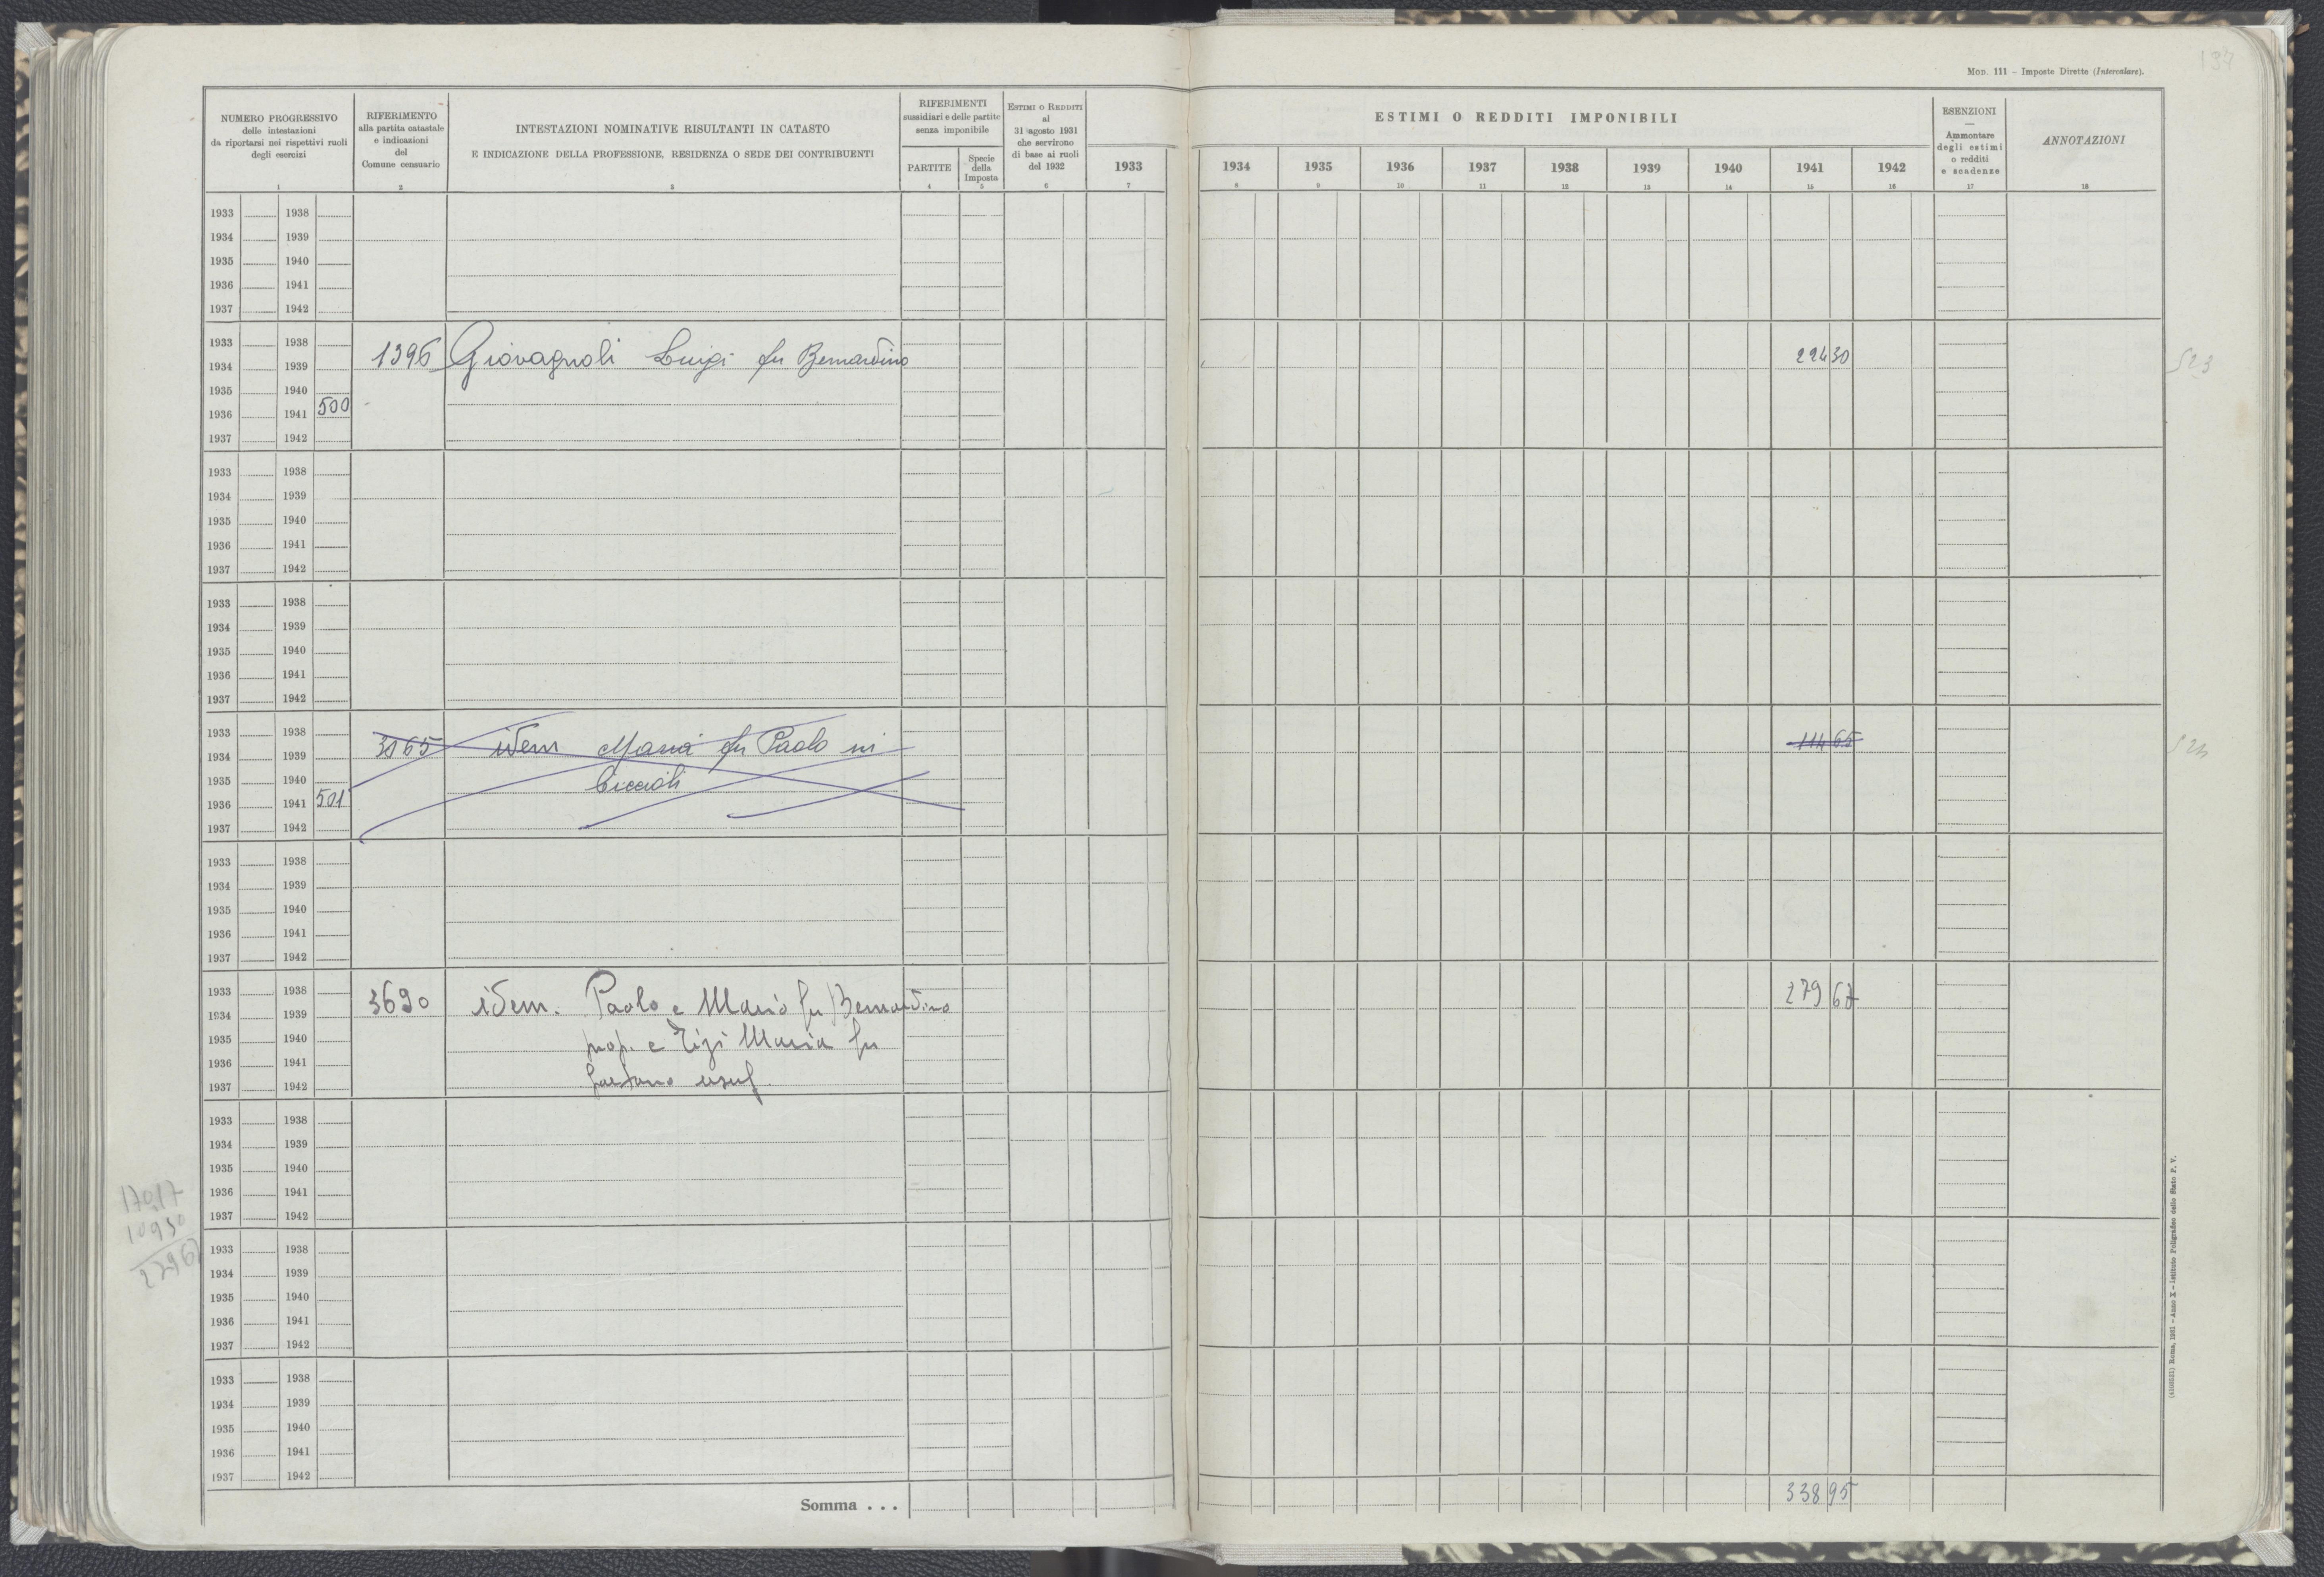 134
MOD. 111 – Imposte Dirette (Intercalare).
NUMERO PROGRESSIVO
delle intestazioni
da riportarsi nei rispettivi ruoli
degli esercizi
1
RIFERIMENTO
alla partita catastale
e indicazioni
del
Comune censuario
2
INTESTAZIONI NOMINATIVE RISULTANTI IN CATASTO
E INDICAZIONE DELLA PROFESSIONE, RESIDENZA O SEDE DEI CONTRIBUENTI
3
RIFERIMENTI
sussidiari e delle partite
senza imponibile
PARTITE
4
Specie
della
Imposta
5
ESTIMI O REDDITI
al
31 agosto 1931
che servirono
di base ai ruoli
del 1932
6
ESTIMI O REDDITI IMPONIBILI
1933 1934 1935 1936 1937 1938 1939 1940 1941 1942
7 8 9 10 11 12 13 14 15 16
ESENZIONI
—
Ammontare
degli estimi
o redditi
e scadenze
17
ANNOTAZIONI
18
1933 1938
1934 1939
1935 1940
1936 1941
1937 1942
1933 1938
1934 1939 1396 Giovagnoli Luigi fu Bernardino 224 30 523
1935 1940
1936 1941 500
1937 1942
1933 1938
1934 1939
1935 1940
1936 1941
1937 1942
1933 1938
1934 1939
1935 1940
1936 1941
1937 1942
1933 1938
1934 1939 3065 idem Maria fu Paolo in 114 65
1935 1940 Ciccioli
1936 1941 501
1937 1942
1933 1938
1934 1939
1935 1940
1936 1941
1937 1942
1933 1938
1934 1939 3690 idem. Paolo e Mario fu Bernardino 279 67
1935 1940 prop. e Tizi Maria fu
1936 1941
1937 1942 Gaetano usuf.
1933 1938
1934 1939
1935 1940
1936 1941
1937 1942
170 17
109 50
279 67
1933 1938
1934 1939
1935 1940
1936 1941
1937 1942
1933 1938
1934 1939
1935 1940
1936 1941
1937 1942
Somma . . . 338 95
Roma, 1931 – Anno X – Istituto Poligrafico dello Stato P. V.